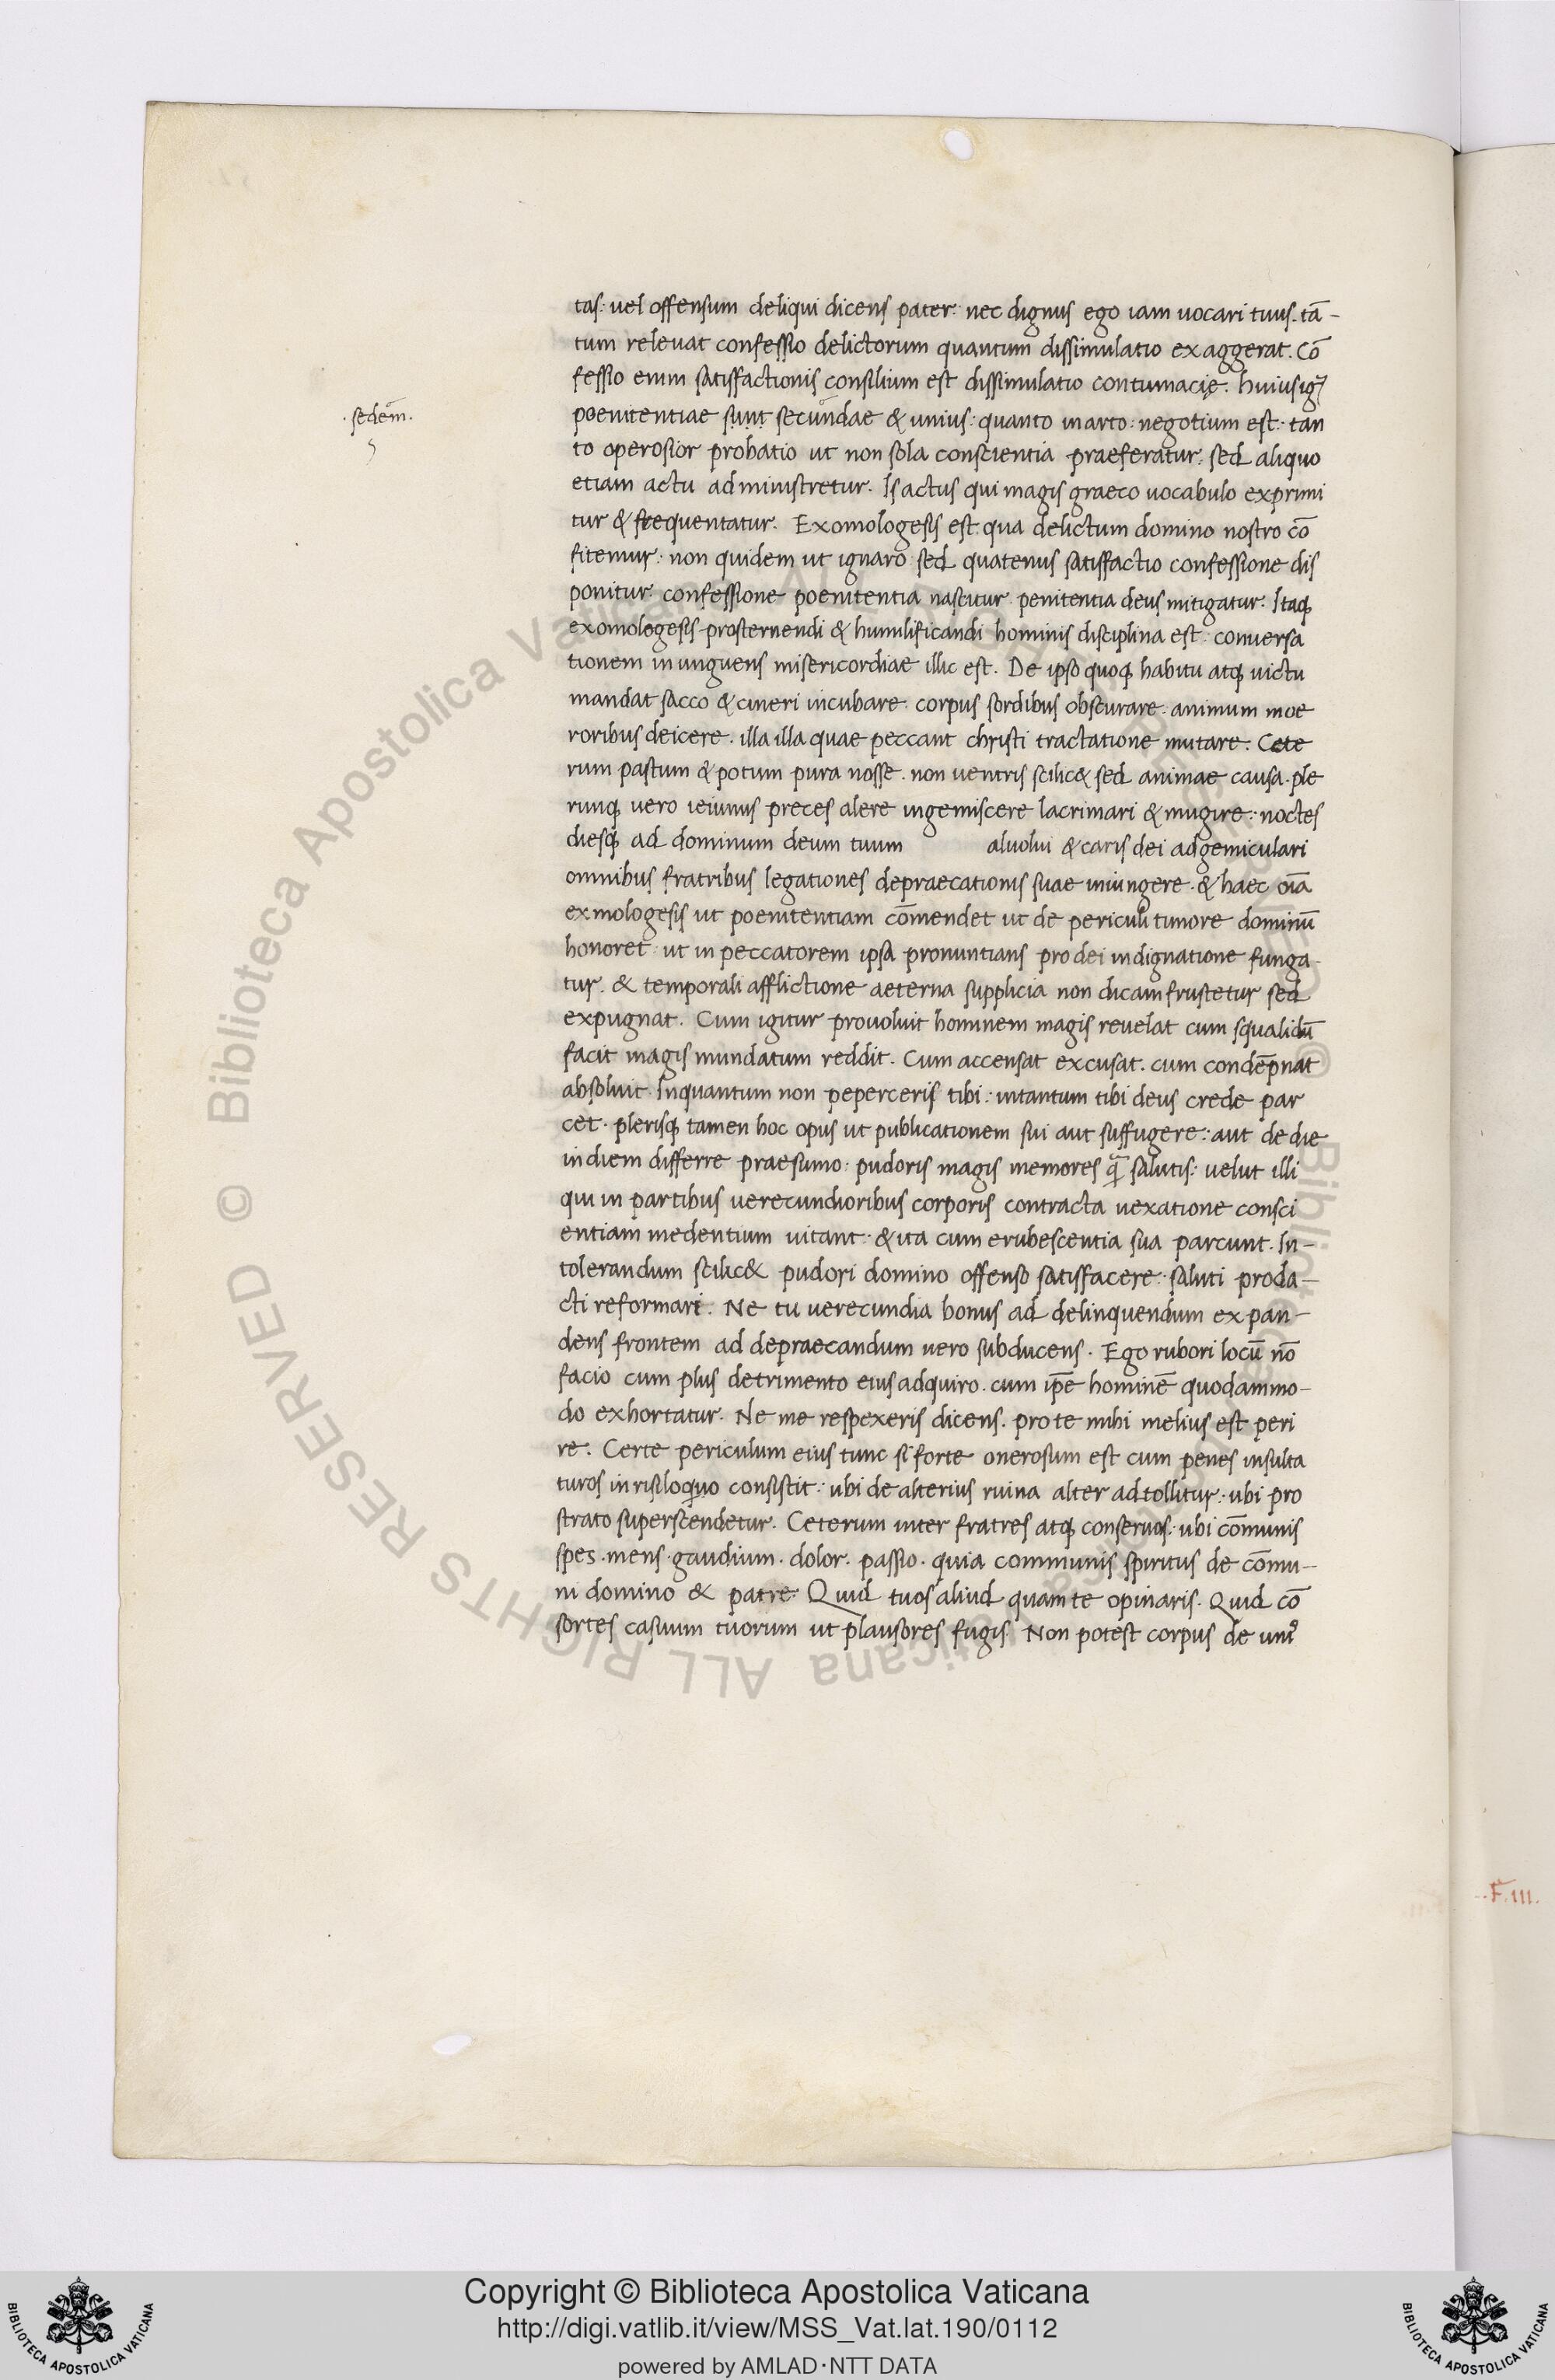 tas: uel offensum deliqui dicens pater: nec dignus ego iam uocari tuus. tā-
tum releuat confessio delictorum quantum dissimulatio exaggerat. Cō
fessio enim satisfactionis consilium est dissimulatio contumacię. huius ig̃
poenitentiae sunt secundae & unius: quanto in arto: negotium est: tan
·sedem̃·
to operosior probatio ut non sola conscientia praeferatur: sed aliquo
etiam actu administretur. Is actus qui magis graeco uocabulo exprimi
tur & frequentatur. Exomologesis est qua delictum domino nostro cō
fitemur: non quidem ut ignaro sed quatenus satisfactio confessione dis
ponitur: confessione poenitentia nascitur penitentia deus mitigatur. Itaq;
exomologesis prosternendi & humilificandi hominis disciplina est: conuersa
tionem in unguens misericordiae illic est. De ipso quoq; habitu atq; uictu
mandat sacco & cineri incubare. corpus sordibus obscurare. animum moe
roribus deicere. illa illa quae peccant christi tractatione mutare. Cete
rum pastum & potum pura nosse. non uentris scilic& sed animae causa. ple
runq; uero ieiunus preces alere ingemiscere lacrimari & mugire: noctes
diesq; ad dominum deum tuum aluolui & caris dei adgemiculari
omnibus fratribus legationes depraecationis suae iniungere. & haec oīa
exmologesis ut poenitentiam cōmendet ut de periculi timore dominū
honoret: ut in peccatorem ipsa pronuntians pro dei indignatione funga-
tur. & temporali afflictione aeterna supplicia non dicam frustetur sed
expugnat. Cum igitur prouoluit hominem magis reuelat cum squalidū
facit magis mundatum reddit. Cum accensat excusat. cum condēpnat
absoluit. Inquantum non peperceris tibi: intantum tibi deus crede par
cet. plerisq; tamen hoc opus ut publicationem sui aut suffugere: aut de die
in diem differre praesumo: pudoris magis memores q̄ salutis: uelut illi
qui in partibus uerecundioribus corporis contracta uexatione consci
entiam medentium uitant: & ita cum erubescentia sua parcunt. In-
tolerandum scilic& pudori domino offenso satisfacere: saluti proda-
cti reformari. Ne tu uerecundia bonus ad delinquendum expan-
dens frontem ad depraecandum uero subducens. Ego rubori locū nō
facio cum plus detrimento eius adquiro. cum ip̄e hominē quodammo-
do exhortatur. Ne me respexeris dicens. pro te mihi melius est peri
re. Certe periculum eius tunc si forte onerosum est cum penes insulta
turos in risiloquo consistit: ubi de alterius ruina alter adtollitur: ubi pro
strato superscendetur. Ceterum inter fratres atq; conseruos: ubi cōmunis
spes. mens. gaudium. dolor. passio. quia communis spiritus de cōmu-
ni domino & patre: Quid tuos aliud quam te opinaris. Quid cō
sortes casuum tuorum ut plausores fugis. Non potest corpus de uni᾿
F.III.
© Biblioteca Apostolica Vaticana ALL RIGHTS RESERVED
Copyright © Biblioteca Apostolica Vaticana
http://digi.vatlib.it/view/MSS_Vat.lat.190/0112
powered by AMLAD·NTT DATA
BIBLIOTECA APOSTOLICA VATICANA
BIBLIOTECA APOSTOLICA VATICANA